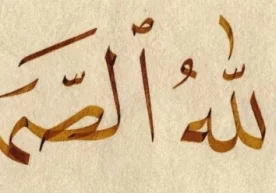 للَّهُ ٱلصَّمَ